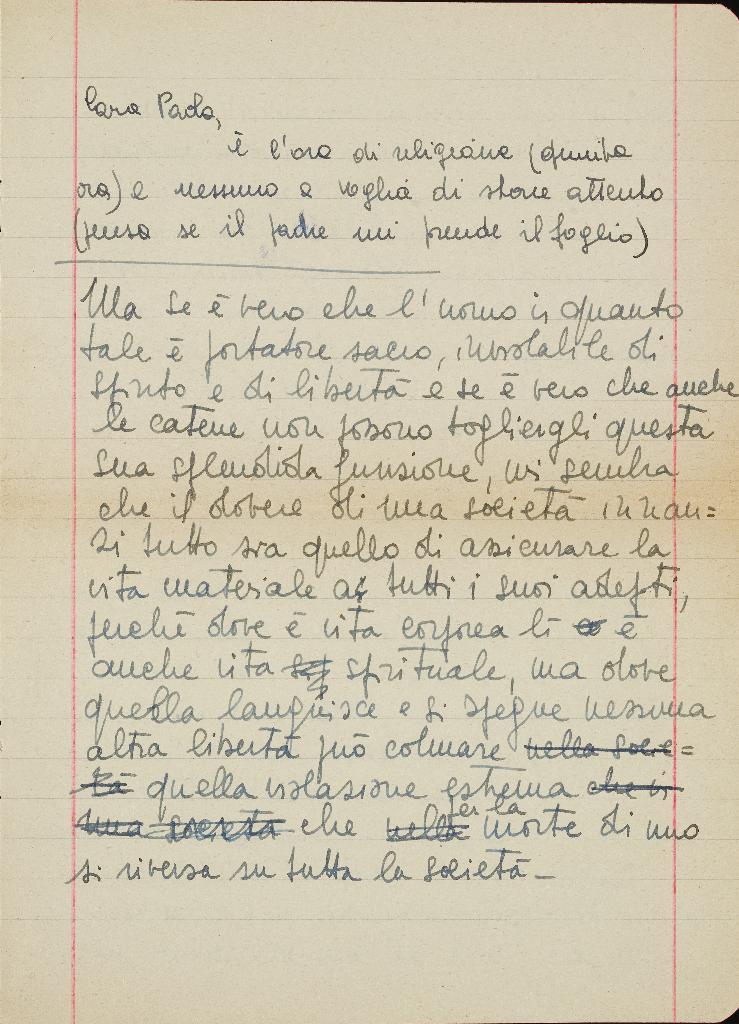 Cara Paola,
è l'ora di religione (quinta
ora) e nessuno a voglia di stare attento
(pensa se il padre mi prende il foglio)
Ma se è vero che l'uomo in quanto
tale è portatore sacro, inviolabile di
spirito e di libertà e se è vero che anche
le catene non possono togliergli questa
sua splendida funzione, mi sembra
che il dovere di una società innan=
zi tutto sia quello di assicurare la
vita materiale a tutti i suoi adepti,
perché dove è vita corporea lì è
anche vita spirituale, ma dove
quella languisce e si spegne nessuna
altra libertà può colmare nella socie=
tà quella violazione estrema che in
una società che nella per la morte di uno
si riversa su tutta la società_